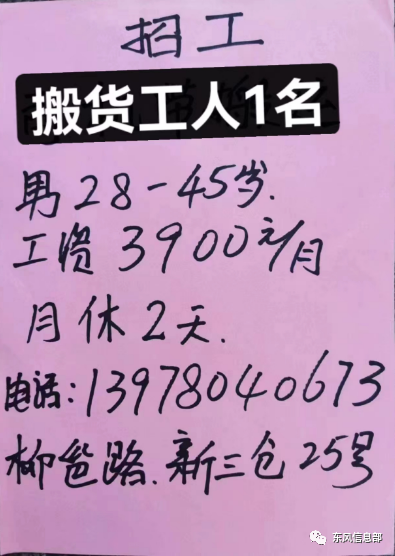 招工
搬货工人1名
男28-45岁.
工资3900元/月
月休2天.
电话:13978040673
柳邕路.新三仓25号
东风信息部